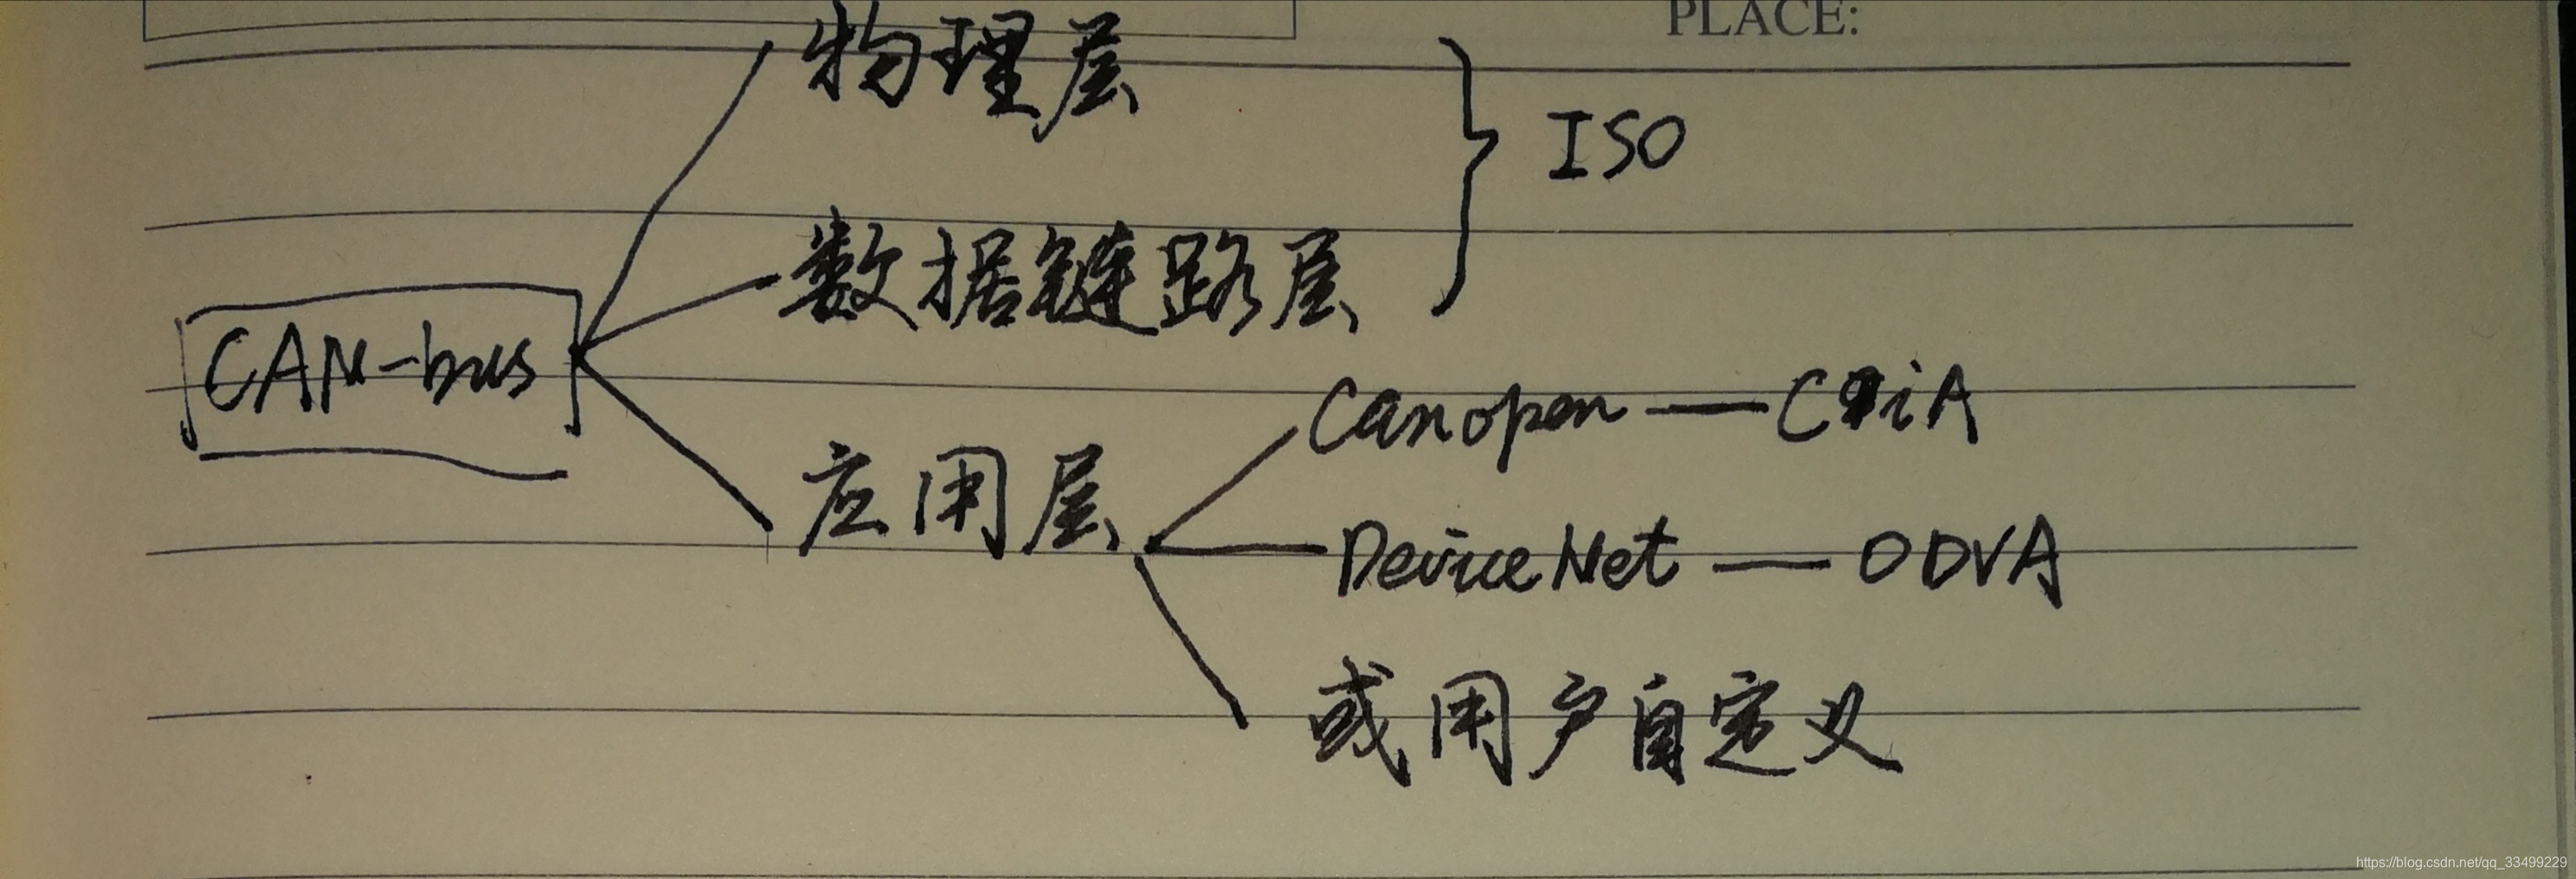 PLACE:
物理层
ISO
数据链路层
CAN-bus
Canopen — CiA
应用层
DeviceNet — ODVA
或用户自定义
https://blog.csdn.net/qq_33499229